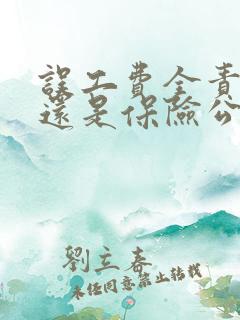 誤工費全責
還是保險公
劉立春
未经同意禁止转载